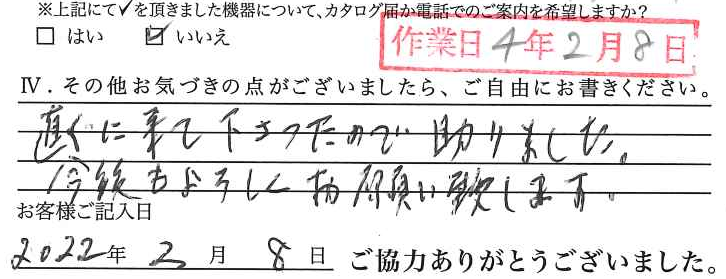 ※上記にて✓を頂きました機器について、カタログ届か電話でのご案内を希望しますか?
□ はい ☑ いいえ
作業日 4年2月8日
Ⅳ．その他お気づきの点がございましたら、ご自由にお書きください。
直ぐに来て下さったので助りました。
今後もよろしくお願い致します。
お客様ご記入日
2022年 2月 8日 ご協力ありがとうございました。